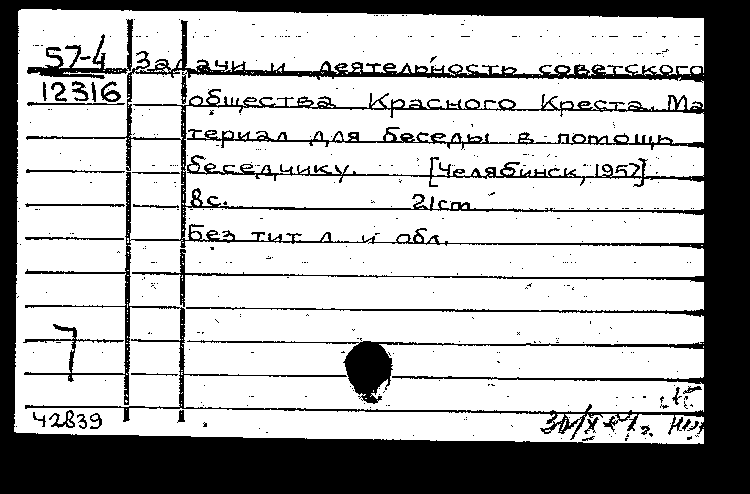 57-4 Задачи и деятельность советского
12316 общества Красного Креста. Ма
териал для беседы в помощь
беседчику. [Челябинск, 1957].
8с. 21cm
Без тит л. и обл.
7
42839